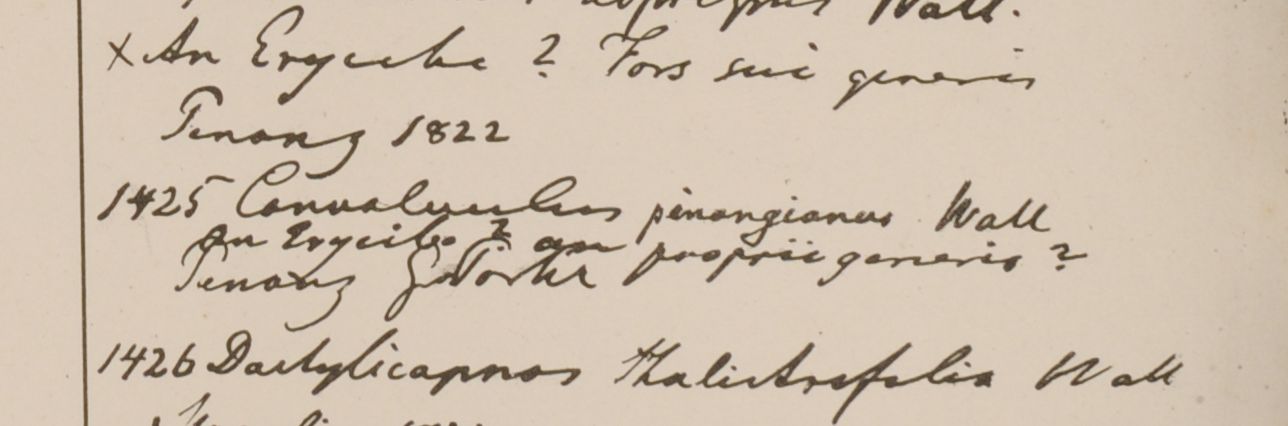 Wall.
× An Erycibe ? Fors sui generis
Penang 1822
1425 Convolvulus pinangianus Wall
An Erycibe ? an proprii generis ?
Penang G. Porter
1426 Dactylicapnos thalictrifolia Wall